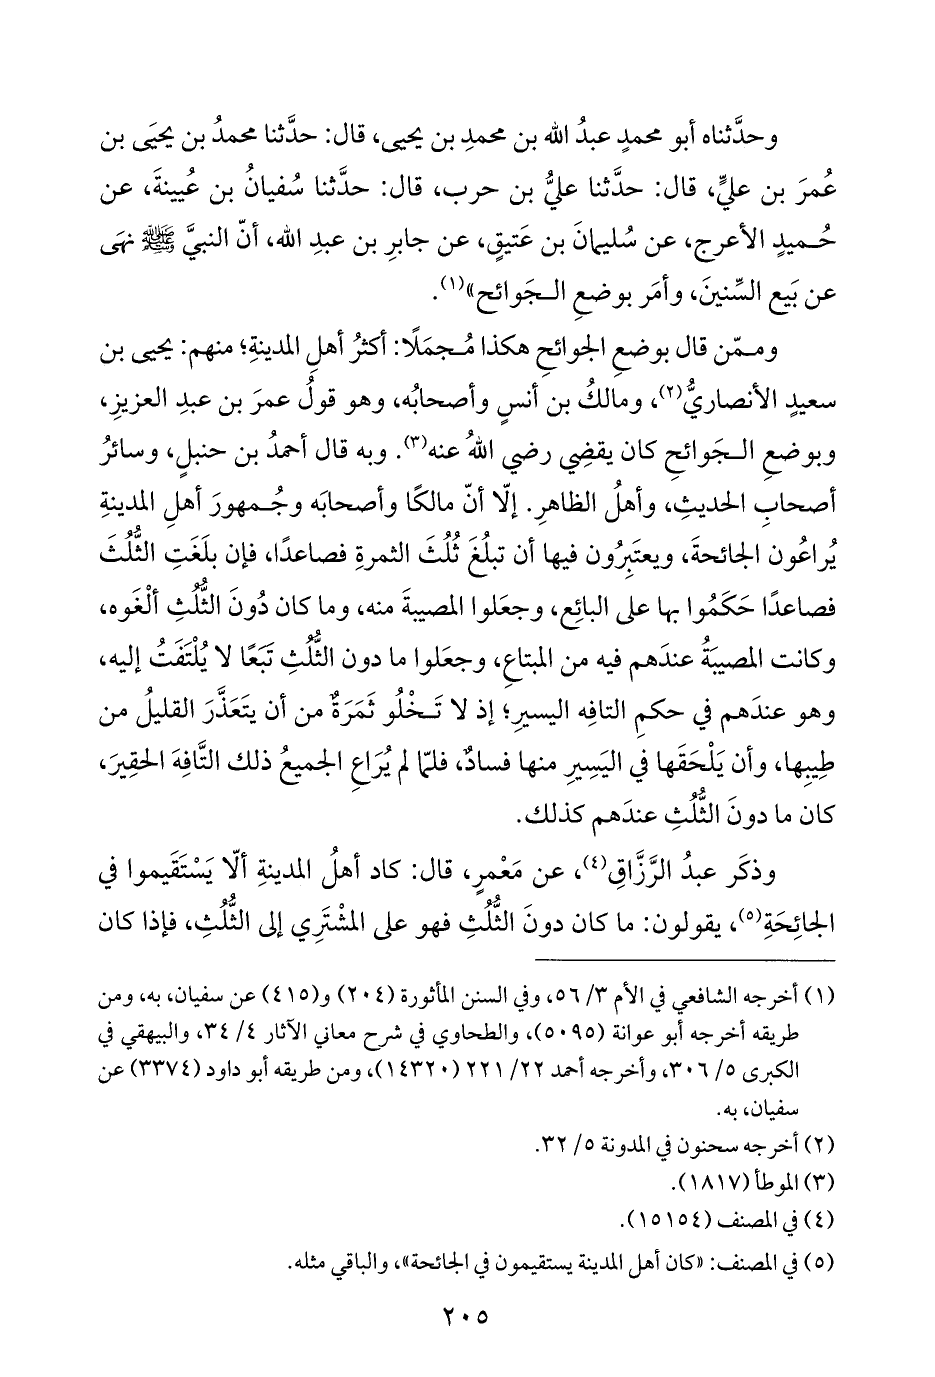 وحدَّثناه أبو محمدٍ عبدُ الله بن محمدِ بن يحيى، قال: حدَّثنا محمدُ بن يحيَى بن
عُمرَ بن عليٍّ، قال: حدَّثنا عليُّ بن حرب، قال: حدَّثنا سُفيانُ بن عُيينةَ، عن
حُـميدٍ الأعرج، عن سُليمانَ بن عَتيقٍ، عن جابرِ بن عبدِ الله، أنّ النبيَّ ﷺ نهَى
عن بَيع السِّنينَ، وأمَر بوضعِ الـجَوائح»(١).
وممّن قال بوضعِ الجوائحِ هكذا مُـجمَلًا: أكثرُ أهلِ المدينةِ؛ منهم: يحيى بن
سعيدٍ الأنصاريُّ(٢)، ومالكُ بن أنسٍ وأصحابُه، وهو قولُ عمرَ بن عبدِ العزيزِ،
وبوضعِ الـجَوائحِ كان يقضِي رضي اللهُ عنه(٣). وبه قال أحمدُ بن حنبلٍ، وسائرُ
أصحابِ الحديثِ، وأهلُ الظاهرِ. إلّا أنّ مالكًا وأصحابَه وجُـمهورَ أهلِ المدينةِ
يُراعُون الجائحةَ، ويعتبِرُون فيها أن تبلُغَ ثُلُثَ الثمرةِ فصاعدًا، فإن بلَغَتِ الثُّلُثَ
فصاعدًا حَكَمُوا بها على البائعِ، وجعَلوا المصيبةَ منه، وما كان دُونَ الثُّلُثِ ألْغَوه،
وكانت المصيبَةُ عندَهم فيه من المبتاعِ، وجعَلوا ما دون الثُّلُثِ تَبَعًا لا يُلْتَفَتُ إليه،
وهو عندَهم في حكمِ التافِه اليسيرِ؛ إذ لا تَـخْلُو ثَمَرَةٌ من أن يتَعَذَّرَ القليلُ من
طِيبِها، وأن يَلْحَقَها في اليَسِيرِ منها فسادٌ، فلمّا لم يُرَاعِ الجميعُ ذلك التَّافِهَ الحقِيرَ،
كان ما دونَ الثُّلُثِ عندَهم كذلك.
وذكَر عبدُ الرَّزَّاقِ(٤)، عن مَعْمرٍ، قال: كاد أهلُ المدينةِ ألّا يَسْتَقَيموا في
الجائِحَةِ(٥)، يقولون: ما كان دونَ الثُّلُثِ فهو على المشْتَرِي إلى الثُّلُثِ، فإذا كان
(١) أخرجه الشافعي في الأم ٣/ ٥٦، وفي السنن المأثورة (٢٠٤) و(٤١٥) عن سفيان، به، ومن
طريقه أخرجه أبو عوانة (٥٠٩٥)، والطحاوي في شرح معاني الآثار ٤/ ٣٤، والبيهقي في
الكبرى ٥/ ٣٠٦، وأخرجه أحمد ٢٢/ ٢٢١ (١٤٣٢٠)، ومن طريقه أبو داود (٣٣٧٤) عن
سفيان، به.
(٢) أخرجه سحنون في المدونة ٥/ ٣٢.
(٣) الموطأ (١٨١٧).
(٤) في المصنف (١٥١٥٤).
(٥) في المصنف: «كان أهل المدينة يستقيمون في الجائحة»، والباقي مثله.
٢٠٥